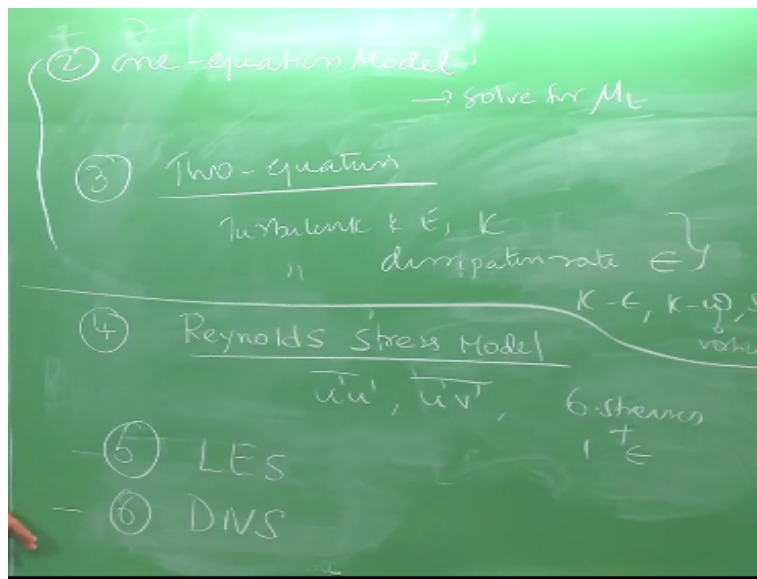 ② One-equation Model
→ solve for μt
③ Two-equation
Turbulent K E, K
" dissipation rate ϵ }
K-ϵ, K-ω,
④ Reynolds Stress Model
u'u', u'v', 6 stresses
+
1 ϵ
- ⑤ LES
- ⑥ DNS